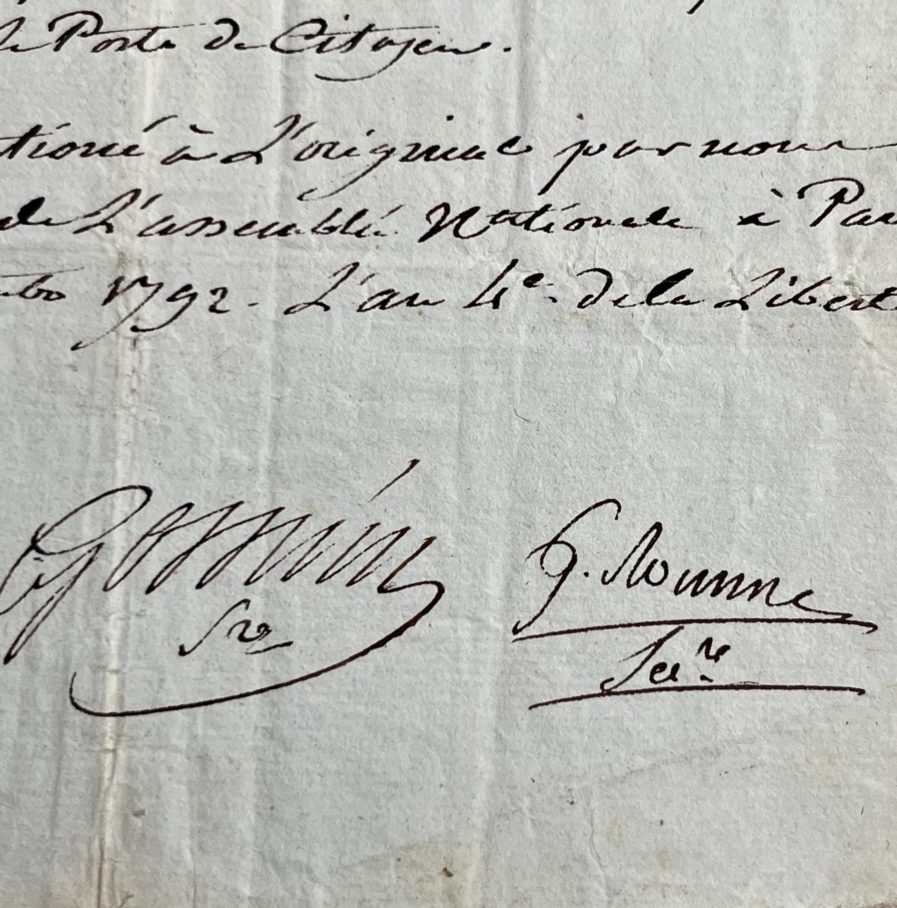 Poste de Citoyen.
tioné à L'original par nous
de L'assemblée Nationale à Par
bre 1792. L'an 4e. de la Libert
Gossuin
Sre
G. Romme
Secre